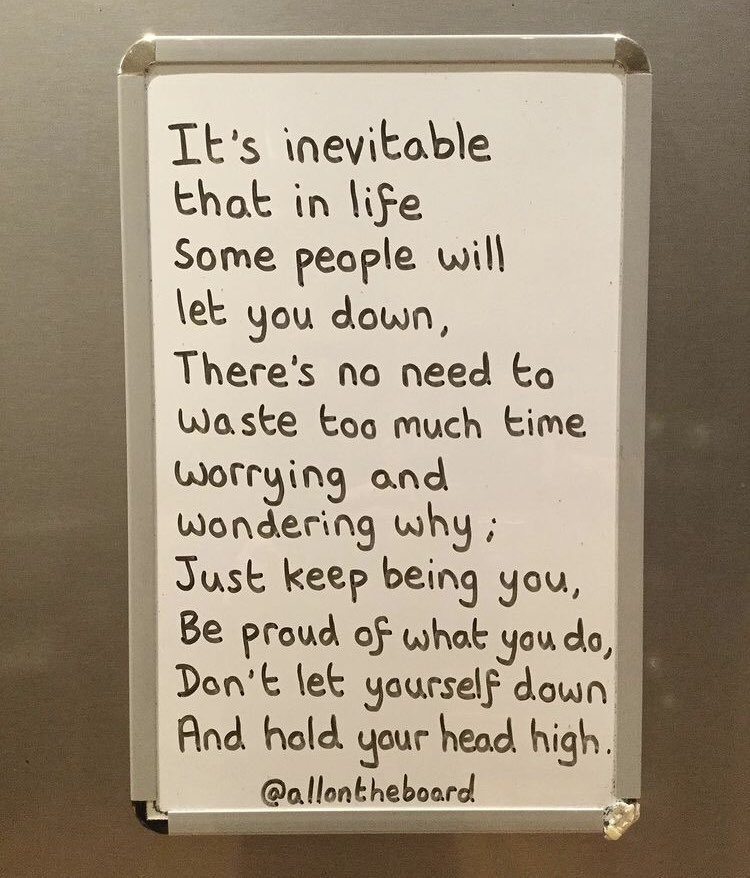 It's inevitable
that in life
Some people will
let you down,
There's no need to
waste too much time
worrying and
wondering why;
Just keep being you,
Be proud of what you do,
Don't let yourself down
And hold your head high.
@allontheboard